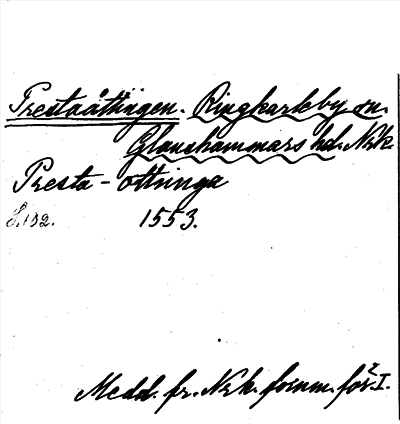 Prestaåttingen. Ringkarleby sn.
Glanshammars hd. Nrk.
Presta-ottinga
S. 132. 1553.
Medd. fr. Nrk. fornm. för. I.